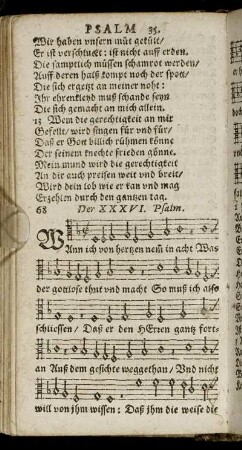 PSALM 35.
Wir haben vnsern mút gekült/
Er ist verschluckt: ist nicht auff erden.
Die samptlich müssen schamrot werden/
Auff deren halß kompt noch der spott/
Die sich ergetzt an meiner noht:
Ihr ehrenkleyd muß schande seyn
Die sich gemacht an mich allein.
13 Wem die gerechtigkeit an mir
Gefellt/ wird singen für vnd für/
Daß er Gott billich rühmen könne
Der seinem knechte frieden gönne.
Mein mund wird die gerechtigkeit
An dir auch preisen weit vnd breit/
Wird dein lob wie er kan vnd mag
Erzehlen durch den gantzen tag.
68 Der XXXVI. Psalm.
WAnn ich von hertzen nem̃ in acht Was
der gottlose thut vnd macht So muß ich also
schliessen/ Daß er den HErren gantz fort-
an Auß dem gesichte weggethan/ Vnd nicht
will von jhm wissen: Daß jhm die weise die